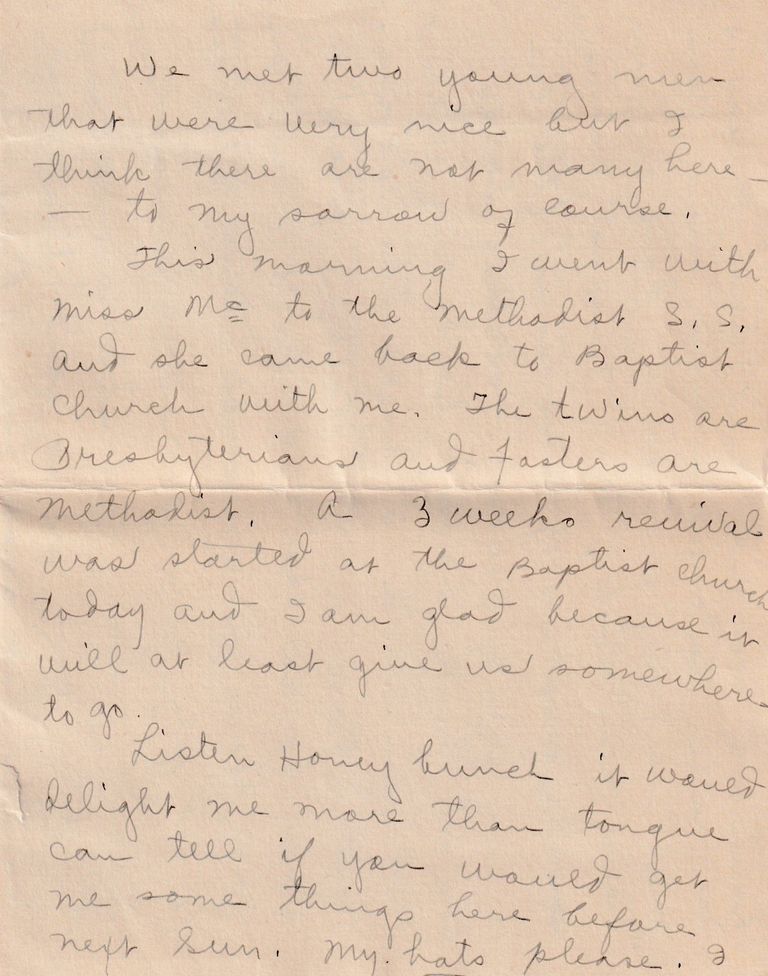 We met two young men
that were very nice but I
think there are not many here —
— to my sorrow of course.
This morning I went with
Miss Mc to the Methodist S. S.
and she came back to Baptist
Church with me. The twins are
Presbyterians and Fosters are
Methodist. A 3 weeks revival
was started at the Baptist church
today and I am glad because it
will at least give us somewhere
to go.
Listen Honey bunch it would
delight me more than tongue
can tell if you would get
me some things here before
next Sun. My hats please. I